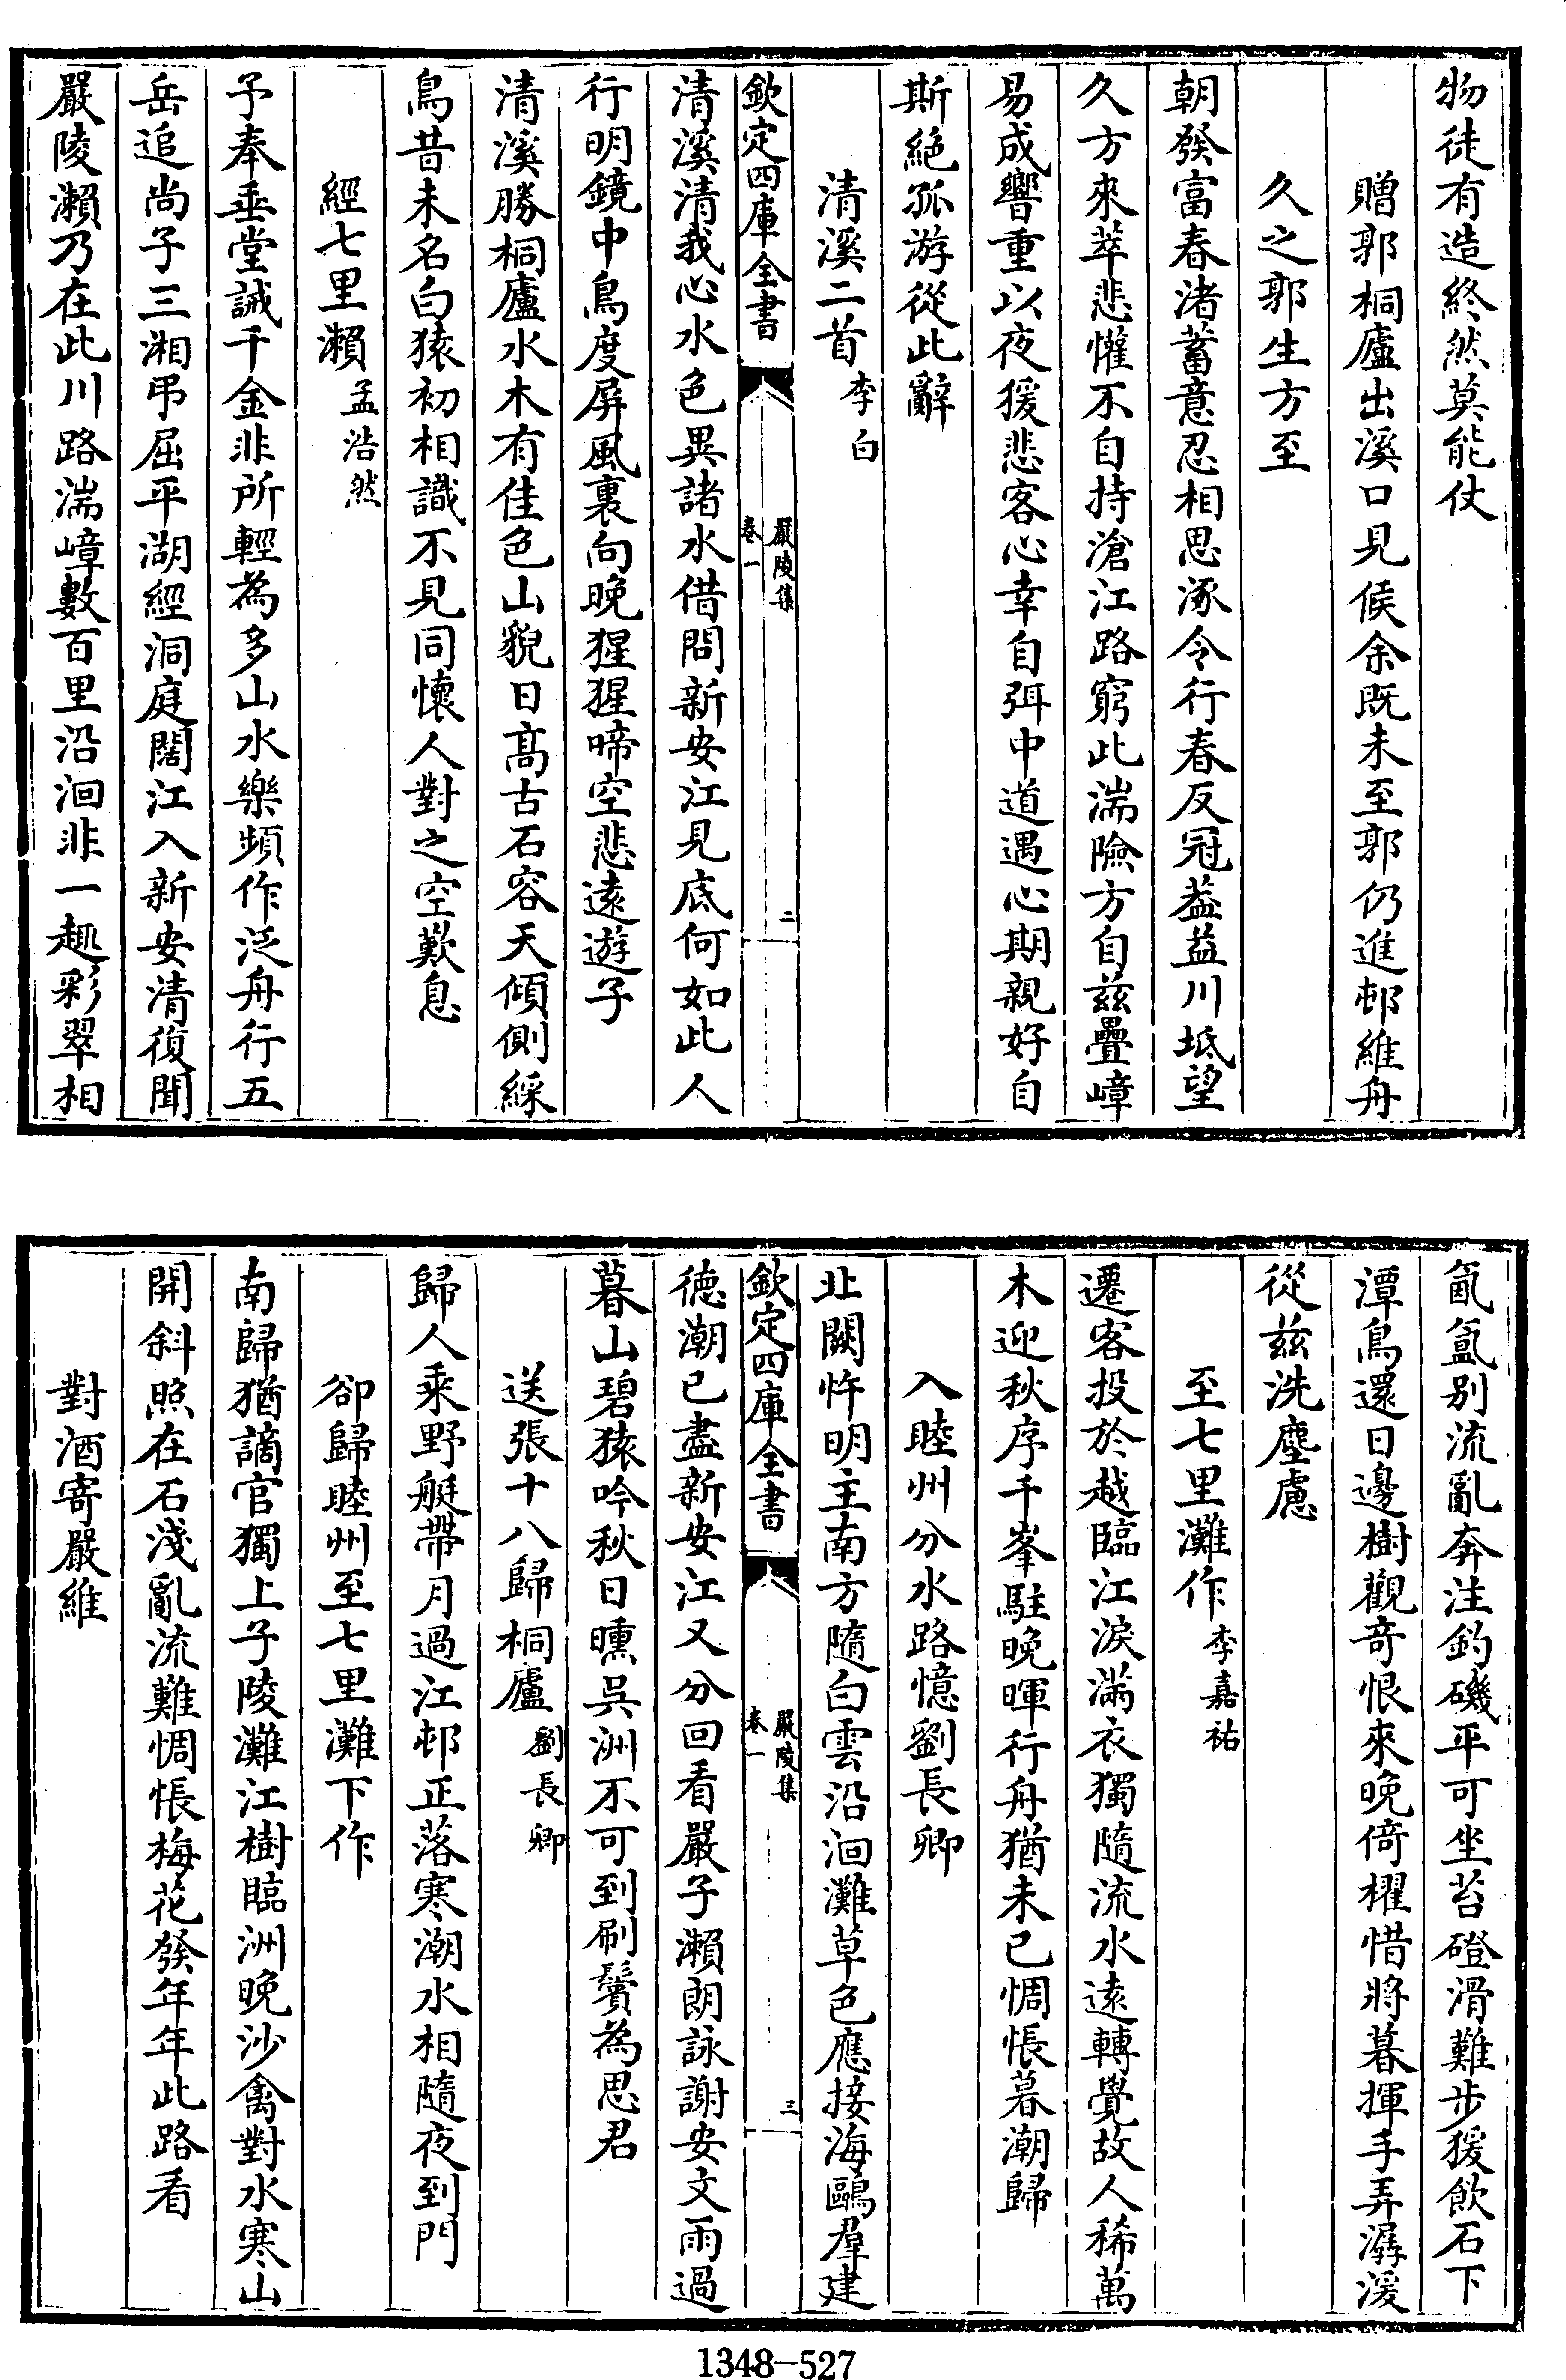 物徒有造終然莫能仗
贈郭桐廬出溪口見候余既未至郭仍進邨維舟
久之郭生方至
朝發富春渚蓄意忍相思涿令行春反冠蓋益川坻望
久方來萃悲懽不自持滄江路窮此湍險方自茲疊嶂
易成響重以夜猨悲客心幸自弭中道遇心期親好自
斯絕孤游從此辭
清溪二首李白
欽定四庫全書
嚴陵集
卷一
二
清溪清我心水色異諸水借問新安江見底何如此人
行明鏡中鳥度屏風裏向晚猩猩啼空悲遠遊子
清溪勝桐廬水木有佳色山貌日高古石容天傾側綵
鳥昔未名白猿初相識不見同懷人對之空歎息
經七里瀨孟浩然
予奉垂堂誡千金非所輕為多山水樂頻作泛舟行五
岳追尚子三湘弔屈平湖經洞庭闊江入新安清復聞
嚴陵瀨乃在此川路湍嶂數百里沿洄非一趣彩翠相
氤氳别流亂奔注釣磯平可坐苔磴滑難步猨飲石下
潭鳥還日邊樹觀奇恨來晚倚櫂惜將暮揮手弄潺湲
從茲洗塵慮
至七里灘作李嘉祐
遷客投於越臨江淚滿衣獨隨流水遠轉覺故人稀萬
木迎秋序千峯駐晚暉行舟猶未已惆悵暮潮歸
入睦州分水路憶劉長卿
北闕忤明主南方隨白雲沿洄灘草色應接海鷗羣建
欽定四庫全書
嚴陵集
卷一
三
德潮已盡新安江又分回看嚴子瀨朗詠謝安文雨過
暮山碧猿吟秋日曛吳洲不可到刷鬢為思君
送張十八歸桐廬劉長卿
歸人乘野艇帶月過江邨正落寒潮水相隨夜到門
卻歸睦州至七里灘下作
南歸猶謫官獨上子陵灘江樹臨洲晚沙禽對水寒山
開斜照在石淺亂流難惆悵梅花發年年此路看
對酒寄嚴維
1348-527